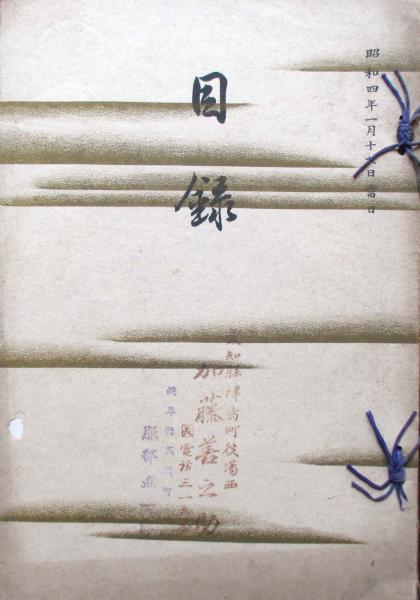 昭和四年一月十六日 當日
目録
愛知縣津島町役場西
加藤善之助
電話三一
服部直一